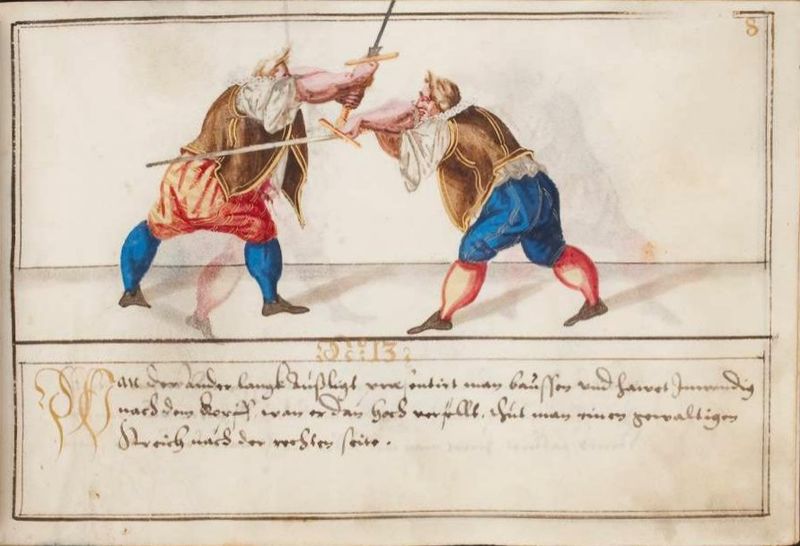 8
No: 13:
Wan der ander langk Außligt præsentirt man baussen und hawet Inwendig
nach dem Kopff, wan er dan hoch verfellt, thut man einen gewaltigen
Streich nach der rechten seite.